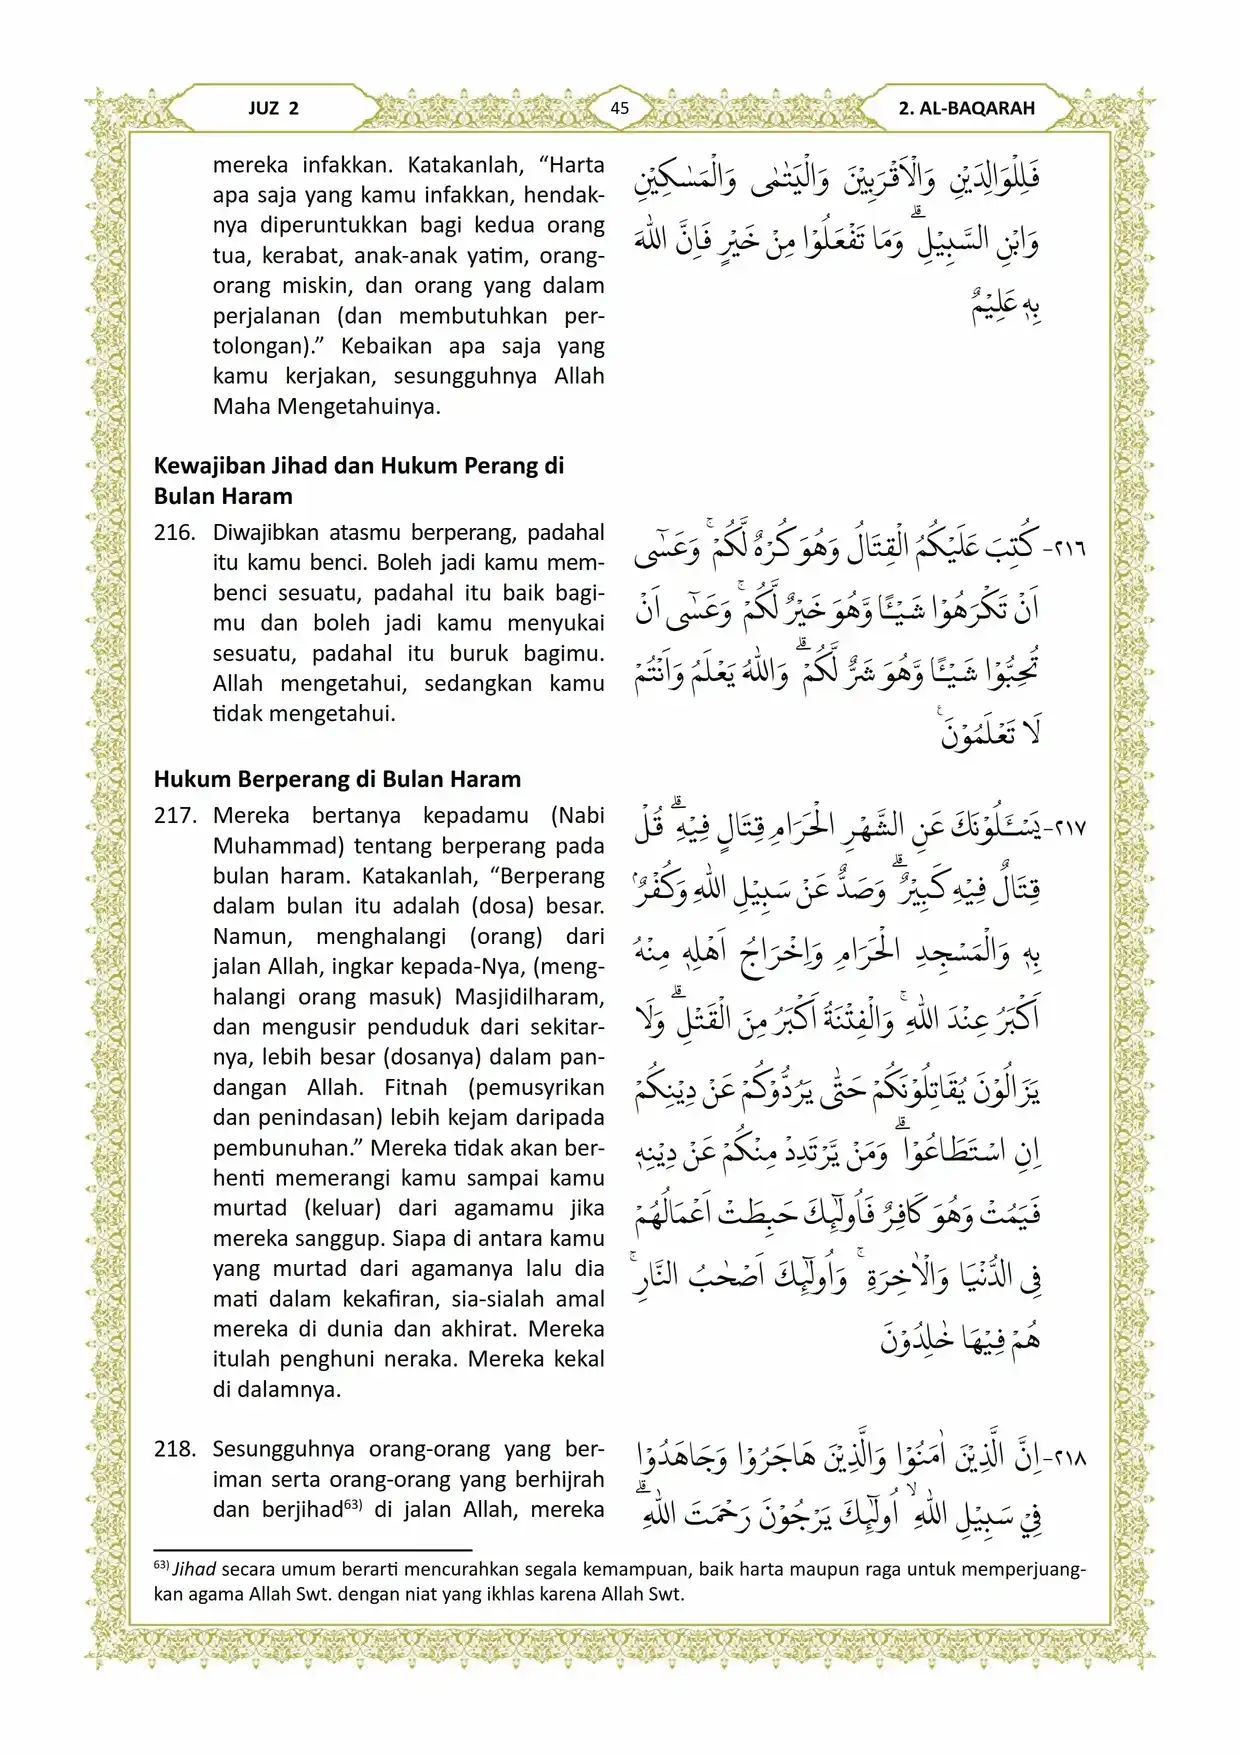 JUZ 2
45
2. AL-BAQARAH
mereka infakkan. Katakanlah, “Harta
apa saja yang kamu infakkan, hendak-
nya diperuntukkan bagi kedua orang
tua, kerabat, anak-anak yatim, orang-
orang miskin, dan orang yang dalam
perjalanan (dan membutuhkan per-
tolongan).” Kebaikan apa saja yang
kamu kerjakan, sesungguhnya Allah
Maha Mengetahuinya.
فَلِلْوَالِدَيْنِ وَالْاَقْرَبِيْنَ وَالْيَتٰمٰى وَالْمَسٰكِيْنِ
وَابْنِ السَّبِيْلِۗ وَمَا تَفْعَلُوْا مِنْ خَيْرٍ فَاِنَّ اللّٰهَ
بِهٖ عَلِيْمٌ
Kewajiban Jihad dan Hukum Perang di
Bulan Haram
216. Diwajibkan atasmu berperang, padahal
itu kamu benci. Boleh jadi kamu mem-
benci sesuatu, padahal itu baik bagi-
mu dan boleh jadi kamu menyukai
sesuatu, padahal itu buruk bagimu.
Allah mengetahui, sedangkan kamu
tidak mengetahui.
٢١٦- كُتِبَ عَلَيْكُمُ الْقِتَالُ وَهُوَ كُرْهٌ لَّكُمْۚ وَعَسٰٓى
اَنْ تَكْرَهُوْا شَيْـًٔا وَّهُوَ خَيْرٌ لَّكُمْۚ وَعَسٰٓى اَنْ
تُحِبُّوْا شَيْـًٔا وَّهُوَ شَرٌّ لَّكُمْۗ وَاللّٰهُ يَعْلَمُ وَاَنْتُمْ
لَا تَعْلَمُوْنَࣖ
Hukum Berperang di Bulan Haram
217. Mereka bertanya kepadamu (Nabi
Muhammad) tentang berperang pada
bulan haram. Katakanlah, “Berperang
dalam bulan itu adalah (dosa) besar.
Namun, menghalangi (orang) dari
jalan Allah, ingkar kepada-Nya, (meng-
halangi orang masuk) Masjidilharam,
dan mengusir penduduk dari sekitar-
nya, lebih besar (dosanya) dalam pan-
dangan Allah. Fitnah (pemusyrikan
dan penindasan) lebih kejam daripada
pembunuhan.” Mereka tidak akan ber-
henti memerangi kamu sampai kamu
murtad (keluar) dari agamamu jika
mereka sanggup. Siapa di antara kamu
yang murtad dari agamanya lalu dia
mati dalam kekafiran, sia-sialah amal
mereka di dunia dan akhirat. Mereka
itulah penghuni neraka. Mereka kekal
di dalamnya.
٢١٧- يَسْـَٔلُوْنَكَ عَنِ الشَّهْرِ الْحَرَامِ قِتَالٍ فِيْهِۗ قُلْ
قِتَالٌ فِيْهِ كَبِيْرٌۗ وَصَدٌّ عَنْ سَبِيْلِ اللّٰهِ وَكُفْرٌۢ
بِهٖ وَالْمَسْجِدِ الْحَرَامِ وَاِخْرَاجُ اَهْلِهٖ مِنْهُ
اَكْبَرُ عِنْدَ اللّٰهِۚ وَالْفِتْنَةُ اَكْبَرُ مِنَ الْقَتْلِۗ وَلَا
يَزَالُوْنَ يُقَاتِلُوْنَكُمْ حَتّٰى يَرُدُّوْكُمْ عَنْ دِيْنِكُمْ
اِنِ اسْتَطَاعُوْاۗ وَمَنْ يَّرْتَدِدْ مِنْكُمْ عَنْ دِيْنِهٖ
فَيَمُتْ وَهُوَ كَافِرٌ فَاُولٰۤىِٕكَ حَبِطَتْ اَعْمَالُهُمْ
فِى الدُّنْيَا وَالْاٰخِرَةِۚ وَاُولٰۤىِٕكَ اَصْحٰبُ النَّارِۚ
هُمْ فِيْهَا خٰلِدُوْنَ
218. Sesungguhnya orang-orang yang ber-
iman serta orang-orang yang berhijrah
dan berjihad⁶³⁾ di jalan Allah, mereka
٢١٨- اِنَّ الَّذِيْنَ اٰمَنُوْا وَالَّذِيْنَ هَاجَرُوْا وَجَاهَدُوْا
فِيْ سَبِيْلِ اللّٰهِۙ اُولٰۤىِٕكَ يَرْجُوْنَ رَحْمَتَ اللّٰهِۗ
⁶³⁾ Jihad secara umum berarti mencurahkan segala kemampuan, baik harta maupun raga untuk memperjuang-
kan agama Allah Swt. dengan niat yang ikhlas karena Allah Swt.